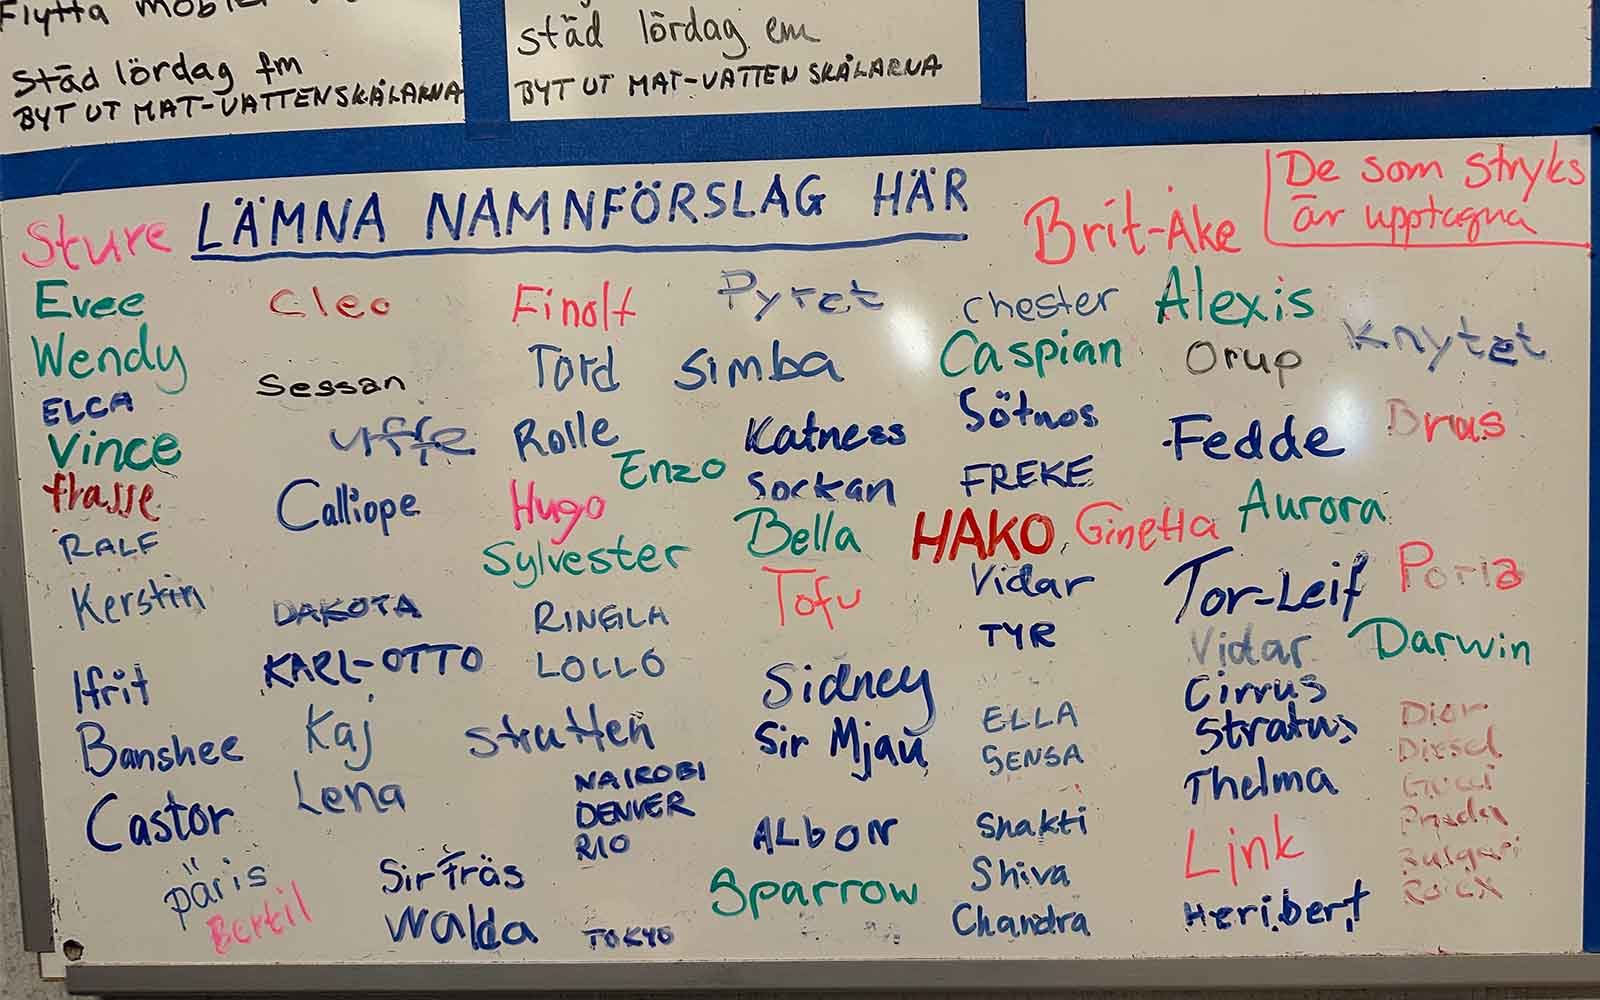 Flytta
Städ lördag fm
BYT UT MAT-VATTENSKÅLARNA
städ lördag em
BYT UT MAT-VATTEN SKÅLARNA
LÄMNA NAMNFÖRSLAG HÄR
De som stryks
är upptagna
Sture
Brit-Åke
Evee
Wendy
ELCA
Vince
frasse
RALF
Kerstin
Ifrit
Banshee
Castor
päris
Bertil
Cleo
Sessan
Uffe
Calliope
DAKOTA
KARL-OTTO
Kaj
Lena
Sir fräs
Walda
Finolf
Tord
Rolle
Enzo
Hugo
Sylvester
RINGLA
LOLLO
Strutten
NAIROBI
DENVER
RIO
TOKYO
Pyret
Simba
Katness
Sockan
Bella
Tofu
Sidney
Sir Mjau
ALbON
Sparrow
chester
Caspian
Sötnos
FREKE
HAKO
Ginetta
Vidar
TYR
ELLA
SENSA
Shakti
Shiva
Chandra
Alexis
Orup
Fedde
Aurora
Tor-Leif
Vidar
Cirrus
Stratus
Thelma
Link
Heribert
Knytet
Brus
Poria
Darwin
Dior
Diesel
Gucci
Prada
Bulgari
Rolex